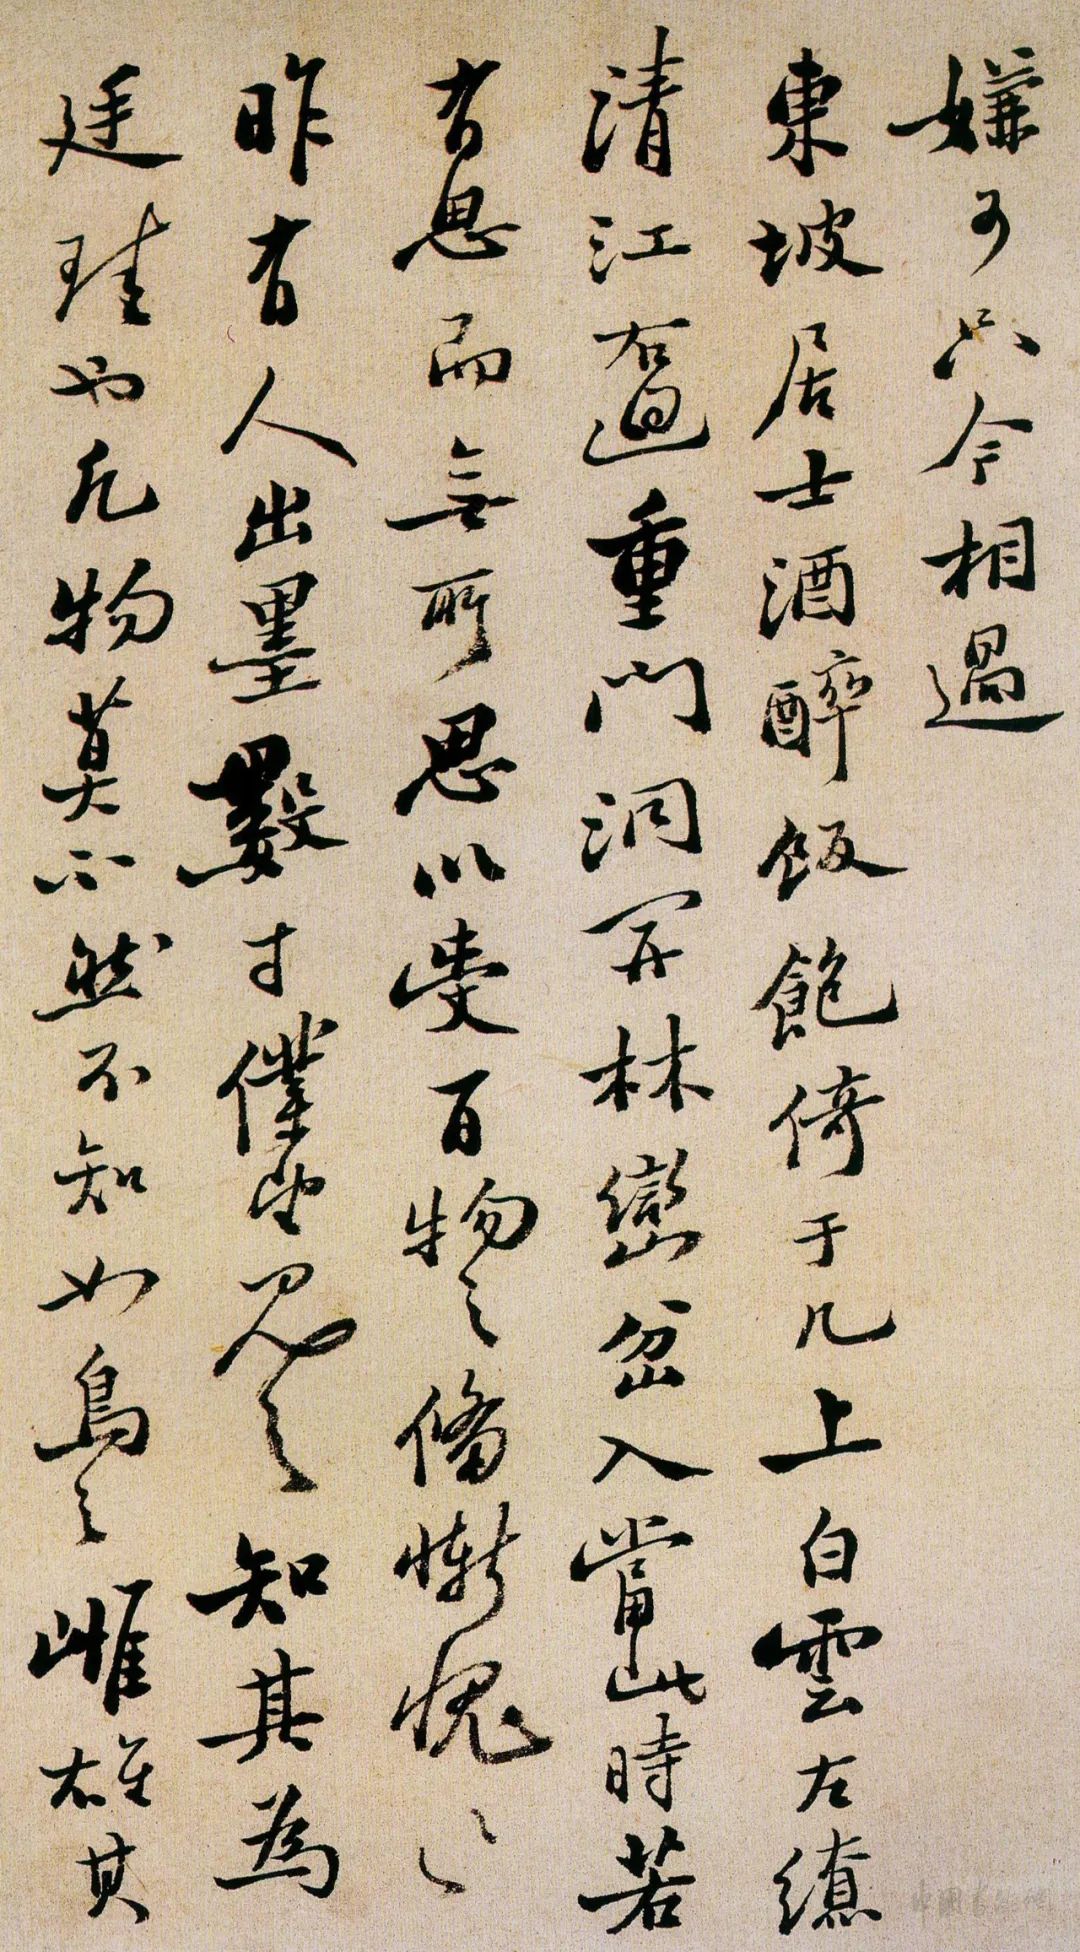 嫌可只今相過
東坡居士酒醉飯飽倚于几上白雲左繚
清江右洄重門洞開林巒岔入當此時若
有思而無所思以受百物之備慚愧〻
昨有人出墨數寸僕望見之知其為
廷珪也凡物莫不然不知如鳥之雌雄其